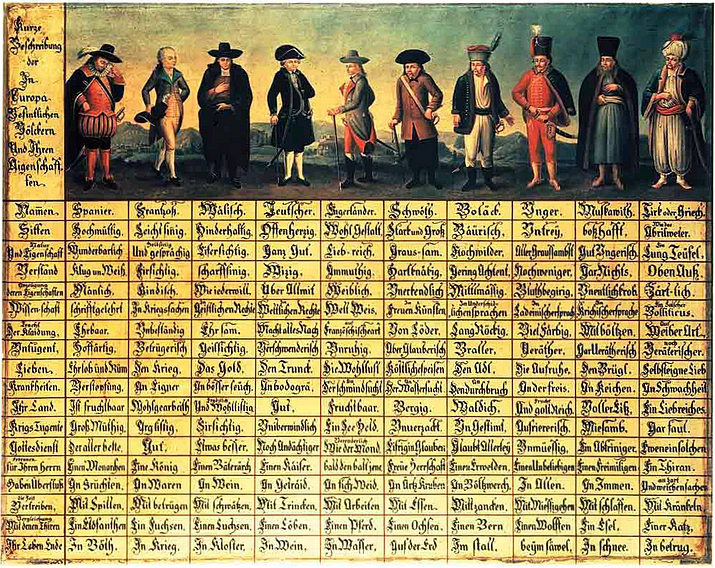 Kurze
Beschreibung
der
In
Europa
Befintlichen
Völckern
Und Ihren
Aigenschaft-
ten.
Namen. Spanier. Frantzoß. Wälisch. Teutscher. Engerländer. Schwöth. Boläck. Unger. Muskawith. Tirk oder Griech.
Sitten Hochmüttig. Leichtsinig. Hinderhaltig. Offenherzig. Wohl Gestalt. Starck und Groß Bäurisch. Untrey. boßhafft. Abrilweter.
Und Eigenschaft Wunderbarlich Und gesprächig Eifersichtig. Ganz Gut. Lieb-reich. Graus-sam. Hochwilder. Aller Graussambst. Gut Ungerisch. Lung Teüfel.
Verstand Klug un Weiß. Firsichtig. scharffsinig. Wizig. Ammuthig. Hartknäkig. Gering Achtent. Nochweniger. Gar Nichts. Oben Auß.
deren Eigenschaften Mänlich. Kindisch. Wie iederwill. Über Allmit Weiblich. Unerkendlich Mittlmäsig. Bluthbegirig. Unentlichkrob. Zärt-lich.
Wissenschaft schrifftgelehrt In Kriegssachen Geistlichen Rechte Weltlichen Rechte Welt Weis. Freuen Künsten lichensprachen Ladeinischersprach Krichischersprache Politicus.
der Klaidung. Ehrbaar. Unbeständig Ehrsam. Macht alles Nach Französcheart Von Löder. Lang Röckig. Viel Färbig. Mit böltzen. Weiber Art.
Untugent. Hoffärtig. Betrügerisch Geillsichtig. Verschwenderisch Unruhig. Aber Glauberisch Braller. Veräther. Gar Verätherisch Verätherischer.
Lieben. Ehrlob und Rüm Den Krieg. Das Gold. Den Trunck. Die Wohllust Köstlichespeisen Den Adl. Die Aufruhe. Den Brügl. Selbsteigne Lieb
Krankheiten. Verstopfung. An Eigner An bösser seüch. An bodogrä. Der schwindsucht Der Wassersucht Den durchbruch Ander freis. An Keichen. An Schwachheit
Ihr Land. Ist fruchtbaar Wohlgearbeith Und Wohllistig Gut. Fruchtbaar. Bergig. Waldich. Und goltReich. Voller Eiß. Ein Liebreiches.
Krigs Tugente Groß Müthig Arg listig. Firsichtig. Uniberwindlich Ein See Held. Unverzackt Un Gestimt. Aufriererisch. Miesamb. Gar faul.
Gottesdienst Der aller beste. Gut. Etwas besser. Noch Andächtiger Wie der Mond Eifrig in Glauben Glaubt Allerley Unmüessig. Ein Abtriniger. Eweneinsolchen
für Ihren herrn Einen Monarchen Eine König Einen Käiser. bald den bald jene Freüe Herrschaft Einen Erwelden Einen Unbeliebigen Einen Freimilligen Ein Thiran.
Haben Überfluß In Früchten. An Waren An Wein. An Getraid. An fich Weid. An Ärtz Kruben An Böltzwerch. In Allen. An Immen. Und weichen sachen
Vertreiben, Mit Spillen. Mit betrügen Mit schwätzen. Mit Trincken. Mit Arbeiten Mit Essen. Mit zancken. Mit Miessigehen Mit schlaffen. Mit Kränkeln
Mit denen Thiren Ein Elofanthen Ein Fuchsen. Einen Luchsen. Einen Löben. Einen Pferd. Einen Ochsen. Einen Bern Einen Wolffen Ein Esel. Einer Katz.
Ihr Leben Ende In Böth. In Krieg. In Kloster. In Wein. In Wasser. Auf der Erd Im stall. beym sawel. In schnee. In betrug.